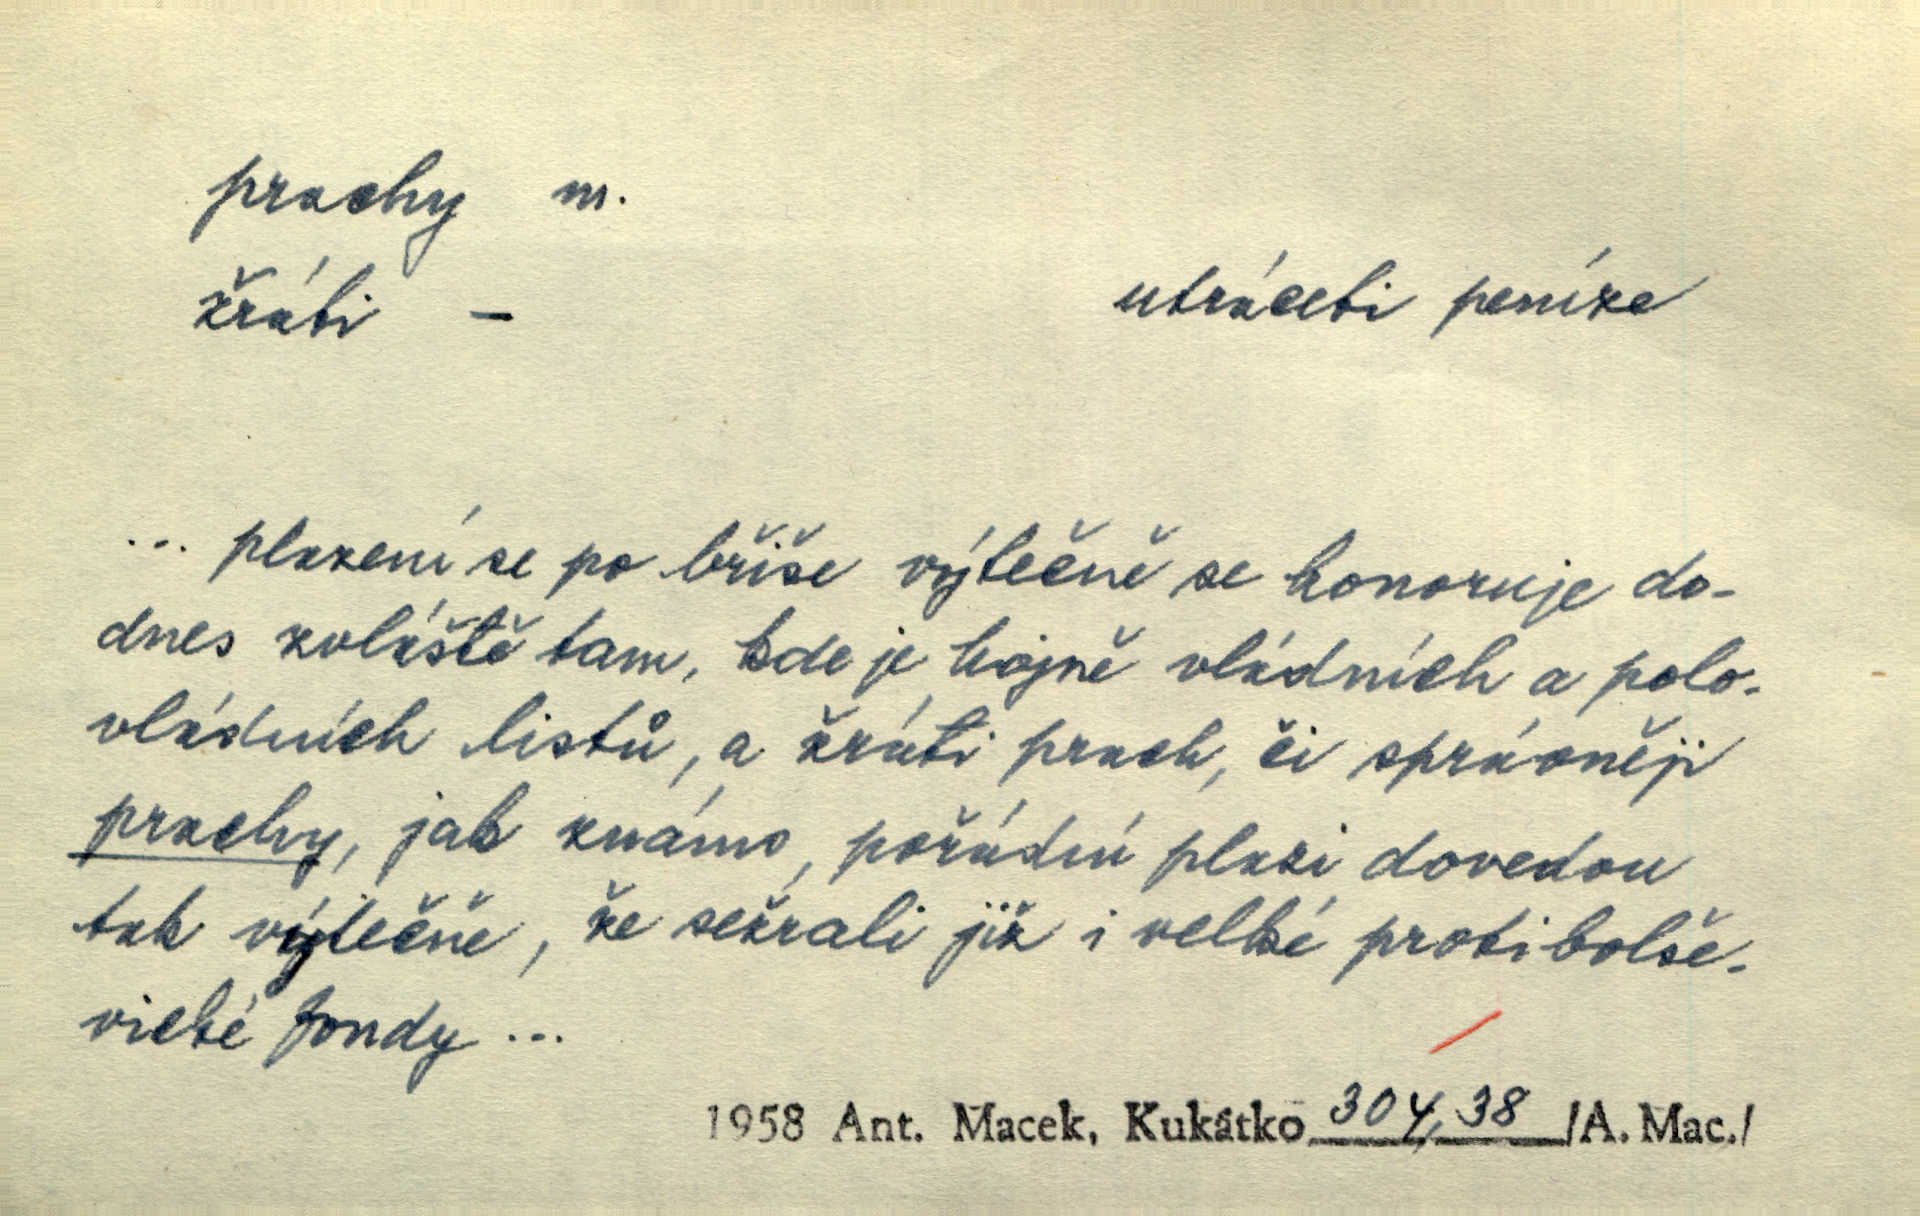 prachy m.
žráti –
utráceti peníze
... plazení se po břiše výtečně se honoruje do-
dnes zvláště tam, kde je hojně vládních a polo-
vládních listů, a žráti prach, či správněji
prachy, jak známo, pořádní plazi dovedou
tak výtečně, že sežrali již i velké protibolše-
vické fondy ...
1958 Ant. Macek, Kukátko 304, 38 /A. Mac./